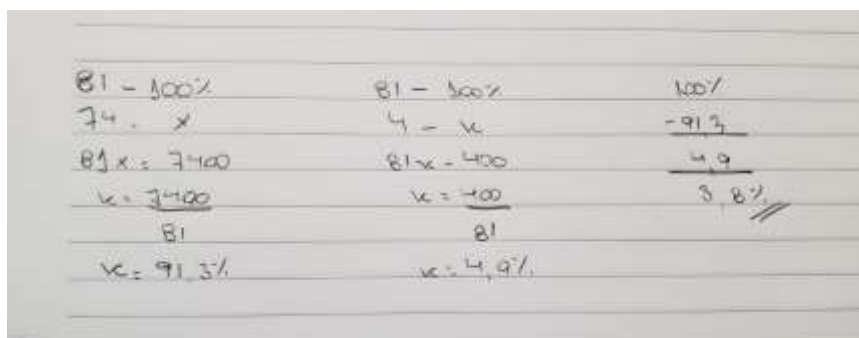 81 - 100%
74 - x
81x = 7400
x = 7400
81
x = 91,3%
81 - 100%
4 - x
81x - 400
x = 400
81
x = 4,9%
100%
- 91,3
4,9
3,8%